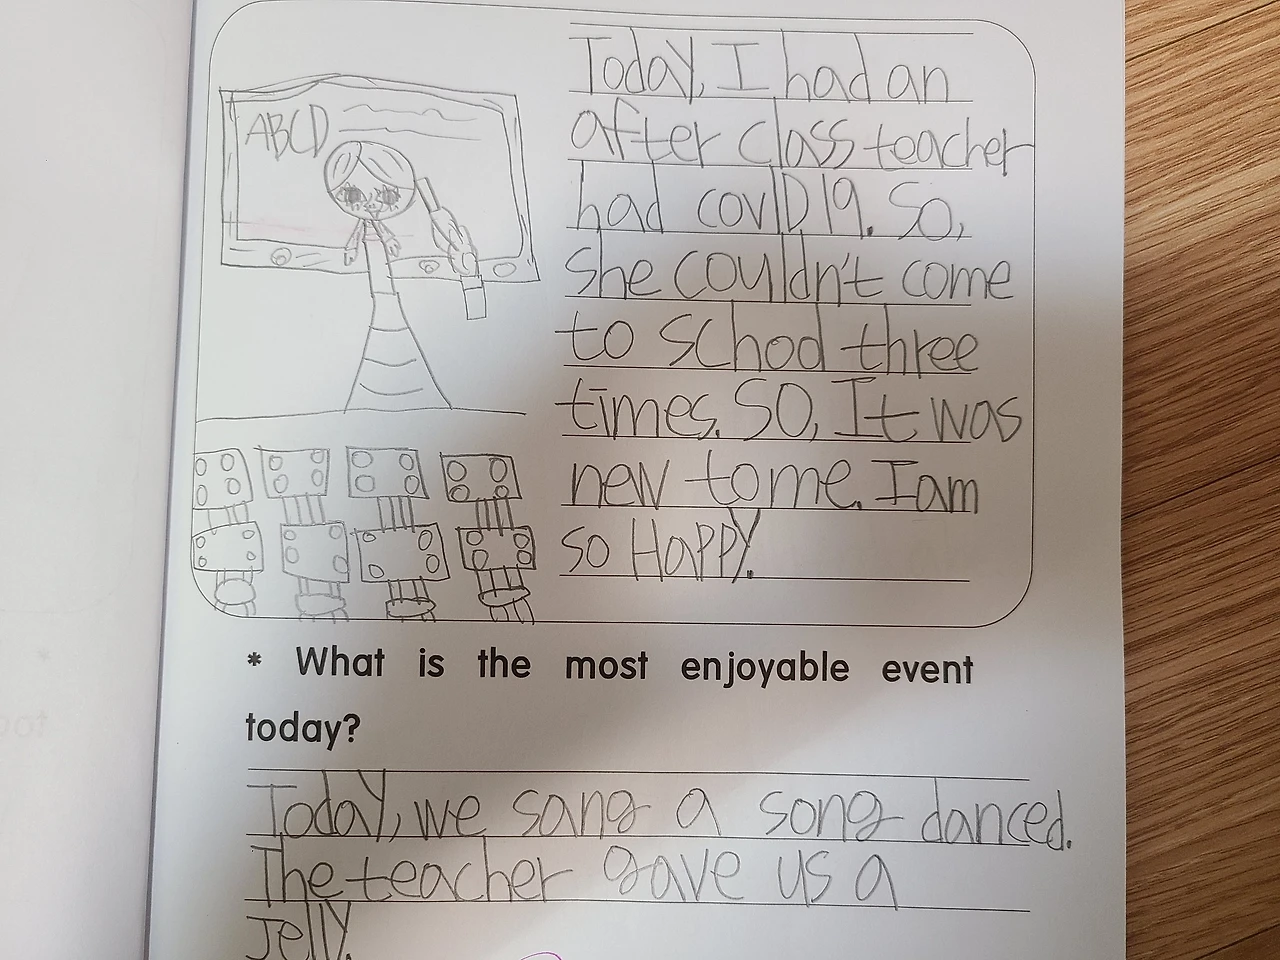 ABCD
Today, I had an
after class teacher
had covID19. So,
She couldn't come
to school three
times. SO, It was
new to me. I am
so HAPPY.
* What is the most enjoyable event
today?
Today, we sang a song danced.
The teacher gave us a
Jelly.